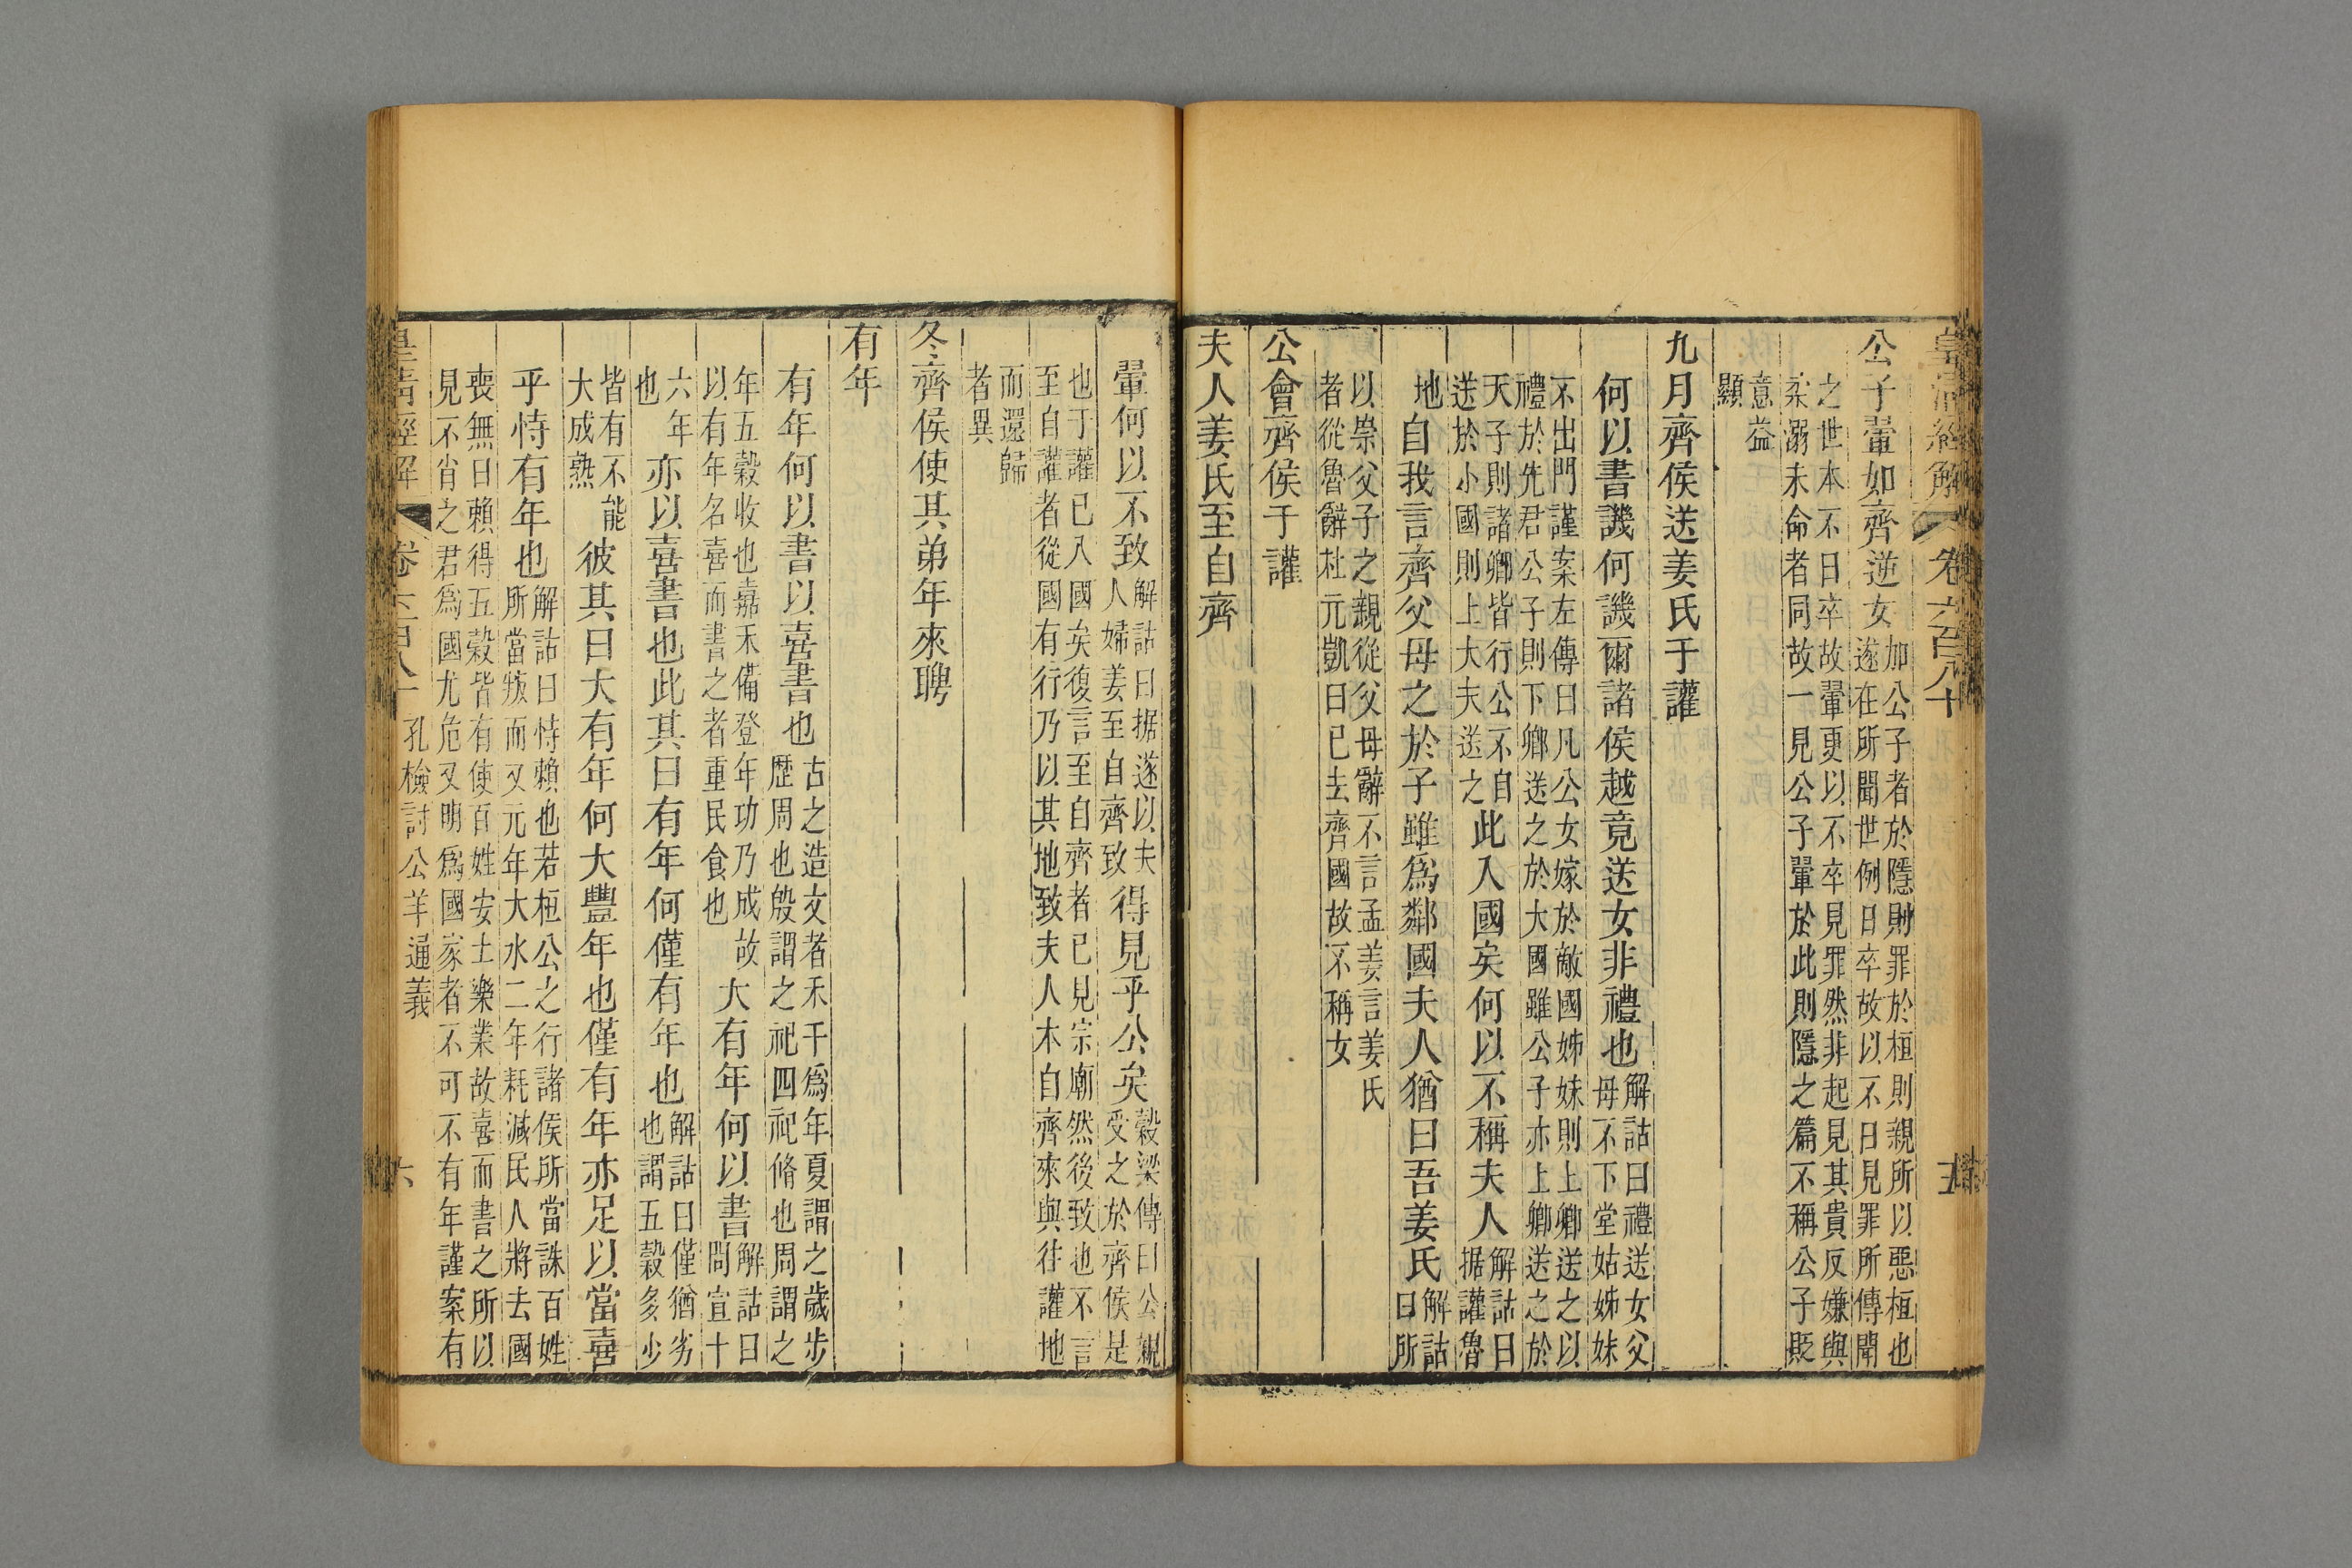 皇清經解　卷六百八十　五
公子翬如齊逆女加公子者於隱則罪於桓則親所以惡桓也遂在所聞世例日卒故以不日見罪所傳聞
之世本不日卒故翬更以不卒見罪然非起見其貴反嫌與柔溺未命者同故一見公子翬於此則隱之篇不稱公子貶
意益顯
九月齊侯送姜氏于讙
何以書譏何譏爾諸侯越竟送女非禮也解詁曰禮送女父母不下堂姑姊妹
不出門謹案左傳曰凡公女嫁於敵國姊妹則上卿送之以禮於先君公子則下卿送之於大國雖公子亦上卿送之於
天子則諸卿皆行公不自送於小國則上大夫送之此入國矣何以不稱夫人解詁曰据讙魯
地自我言齊父母之於子雖爲鄰國夫人猶曰吾姜氏解詁曰所
以崇父子之親從父母辭不言孟姜言姜氏者從魯辭杜元凱曰已去齊國故不稱女
公會齊侯于讙
夫人姜氏至自齊
翬何以不致解詁曰据遂以夫人婦姜至自齊致得見乎公矣穀梁傳曰公親受之於齊侯是
也于讙已入國矣復言至自齊者已見宗廟然後致也不言至自讙者從國有行乃以其地致夫人本自齊來與往讙地
而還歸者異
冬齊侯使其弟年來聘
有年
有年何以書以喜書也古之造文者禾千爲年夏謂之歲步歷周也殷謂之祀四祀脩也周謂之
年五穀收也嘉禾備登年功乃成故以有年名喜而書之者重民食也大有年何以書解詁曰問宣十
六年也亦以喜書也此其曰有年何僅有年也解詁曰僅猶劣也謂五穀多少
皆有不能大成熟彼其曰大有年何大豐年也僅有年亦足以當喜
乎恃有年也解詁曰恃賴也若桓公之行諸侯所當誅百姓所當叛而又元年大水二年耗減民人將去國
喪無日賴得五穀皆有使百姓安土樂業故喜而書之所以見不肖之君爲國尤危又明爲國家者不可不有年謹案有
皇清經解　卷六百八十　孔檢討公羊通義　六